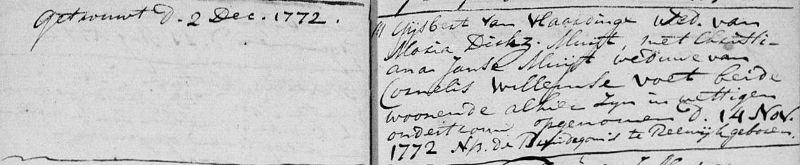 getrouwt d. 2 Dec. 1772.
Gijsbert van Vlaardinge wed. van
Maria Dirkz. Muijt, met Christi-
ana Janse Muijt weduwe van
Cornelis Willemse Voet beide
woonende alhier Zijn in wettigen
ondertrouw opgenomen d. 14 Nov.
1772 NB. de Bruidegom is te Reewijk geboren.